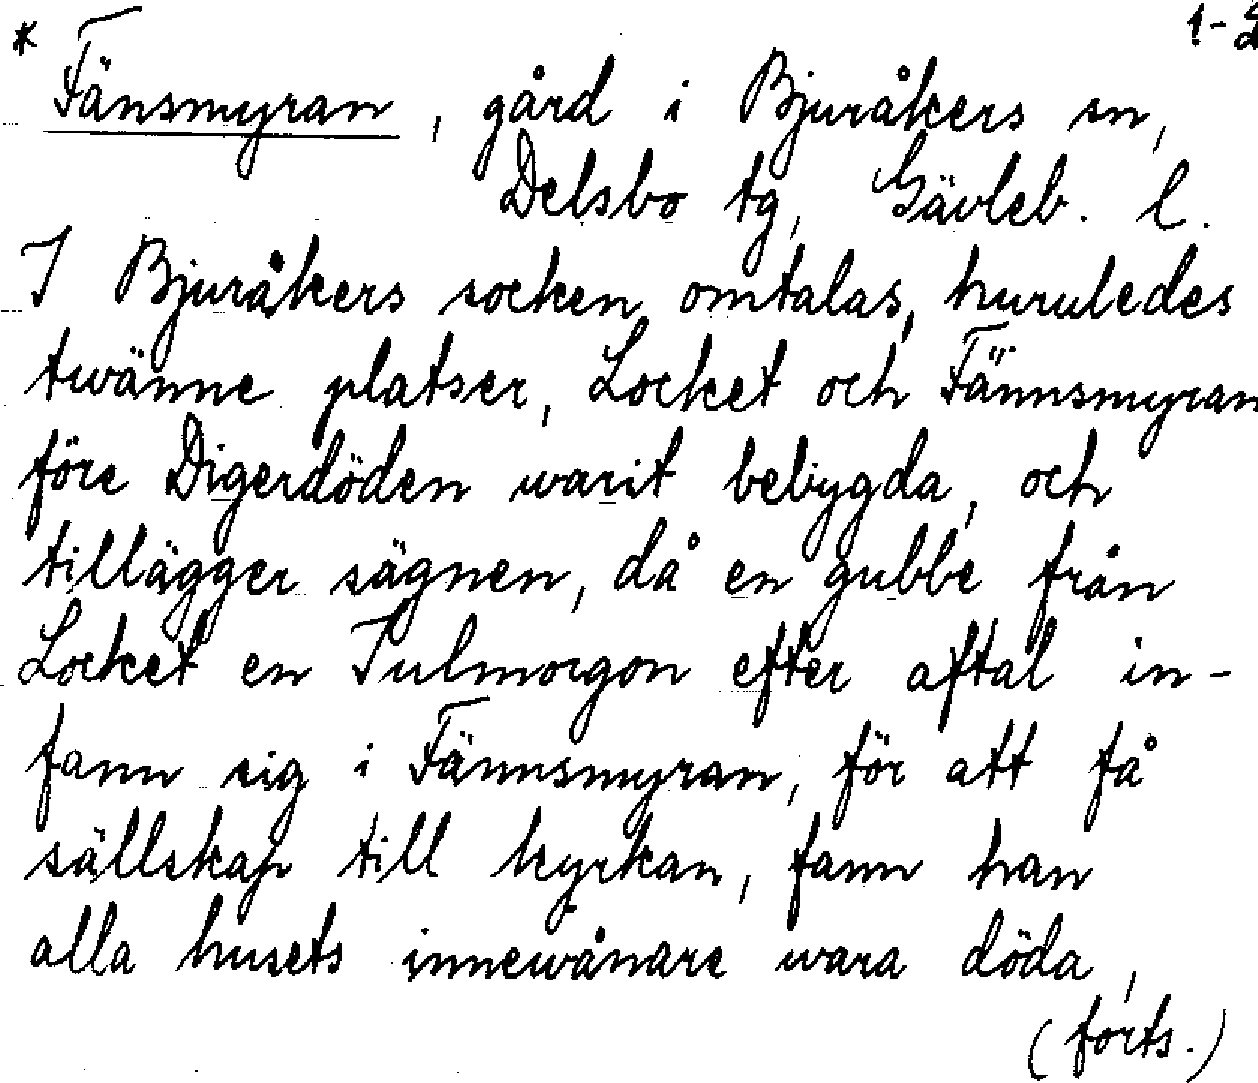 * Fänsmyran, gård i Bjuråkers sn, 1-2
Delsbo tg, Gävleb. l.
I Bjuråkers socken omtalas, huruledes
twänne platser, Locket och Fännsmyran
före Digerdöden warit bebygda, och
tillägger sägnen, då en gubbe från
Locket en Julmorgon efter aftal in-
fann sig i Fännsmyran, för att få
sällskap till kyrkan, fann han
alla husets innewånare wara döda,
(forts.)